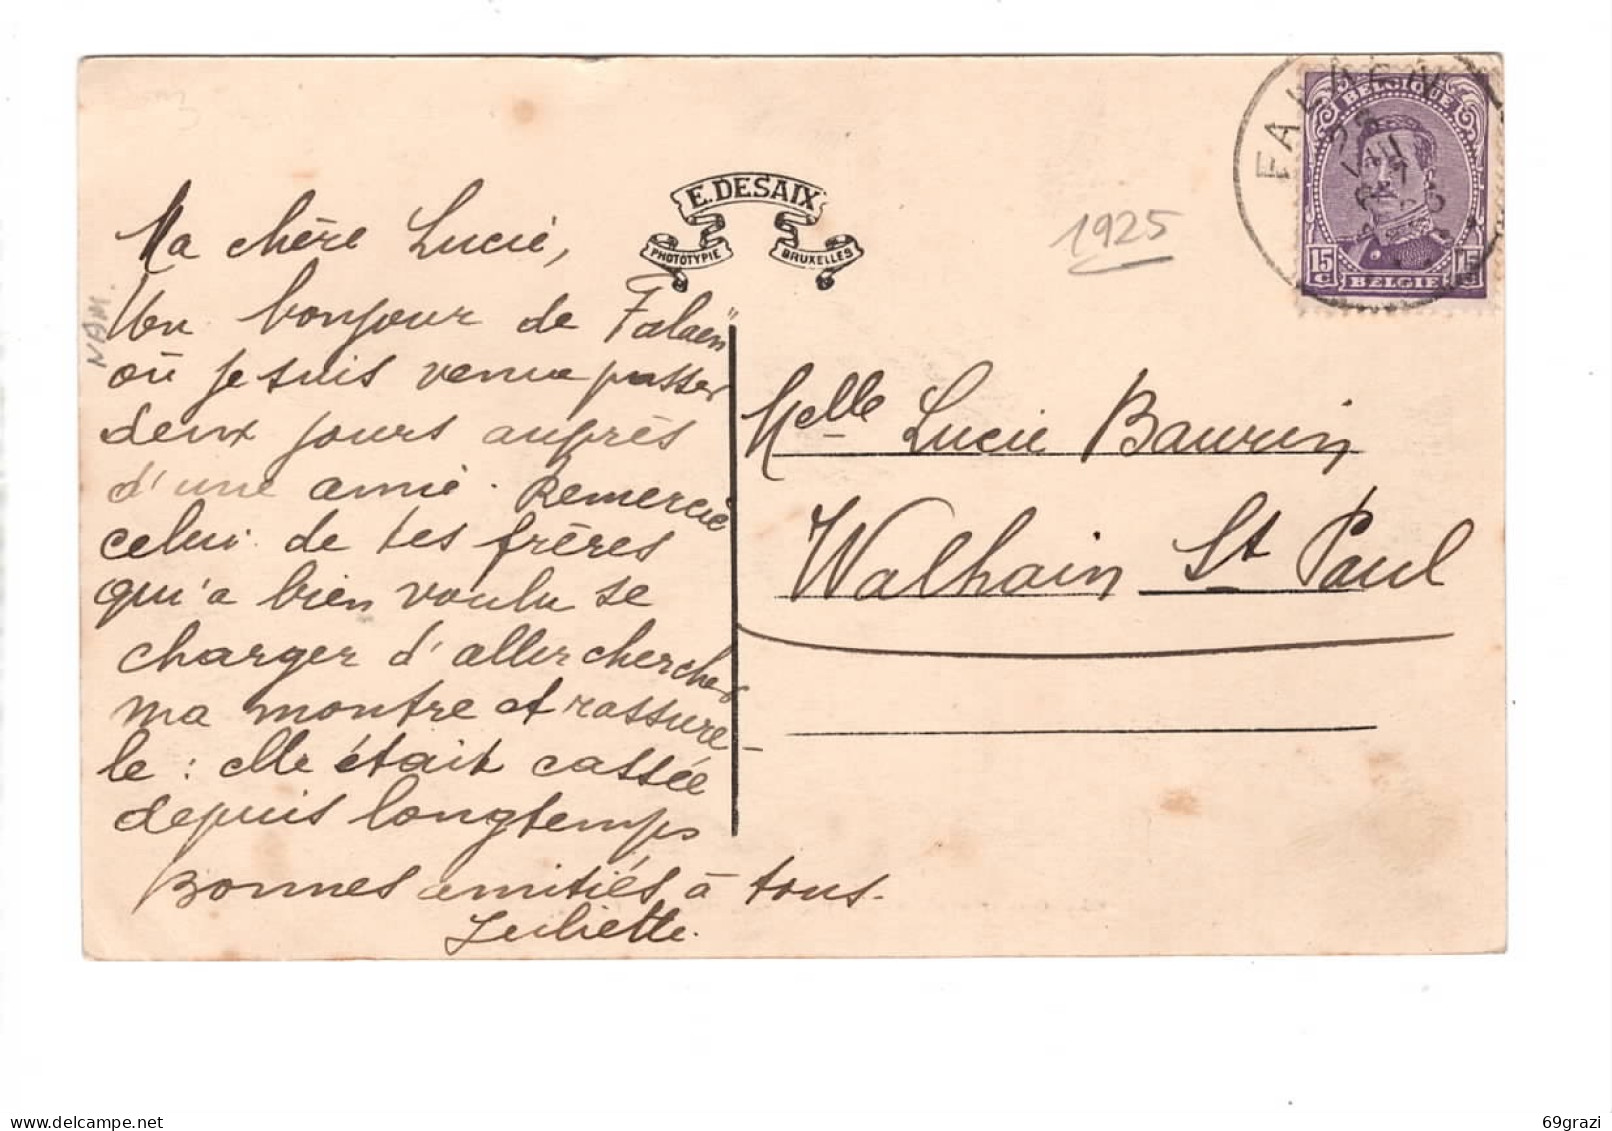 E. DESAIX
PHOTOTYPIE
BRUXELLES
1925
FALAEN
BELGIQUE
15 C
15 C
BELGIE
NAM.
Ma chère Lucie,
Un bonjour de Falaën
où je suis venue passer
deux jours auprès
d'une amie. Remercie
celui de tes frères
qui a bien voulu se
charger d'aller chercher
ma montre et rassure-
le : elle était cassée
depuis longtemps
Bonnes amitiés à tous.
Juliette.
Melle Lucie Baurin
Walhain St Paul
www.delcampe.net
69grazi